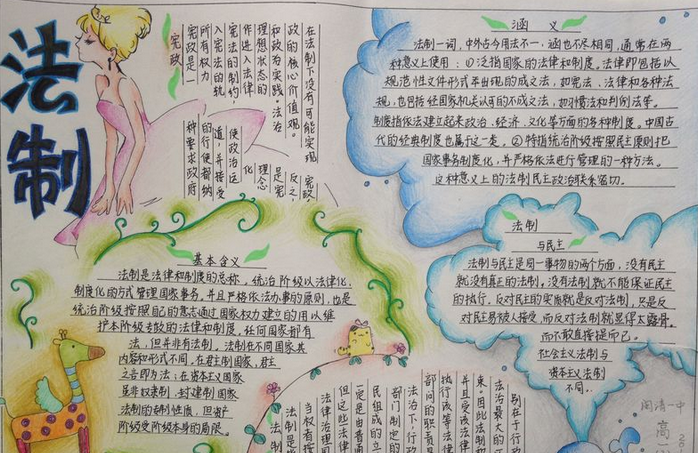 法制
宪政
宪政是一
所有权力
入宪法的轨
宪法的制约,
作进入法律
理想状态的
和政为实践。法治
政的核心价值观。
在法制下没有可能实现
种要求政府
的行使都纳
道,并接受
使政治运
化
理念
是宪
反之,
宪政,
涵 义
法制一词,中外古今用法不一,涵也不尽相同,通常在两
种意义上使用:①泛指国家的法律和制度。法律即包括以
规范性文件形式平出现的成文法,如宪法、法律和各种法
规,也包括经国家机关认可的不成文法,如习惯法和判例法等。
制度指依法建立起来政治、经济、文化等方面的各种制度。中国古
代的经典制度也属于这一类。②特指统治阶级按照民主原则把
国家事务制度化,并严格依法进行管理的一种方法。
这种意义上的法制民主政治联系密切。
法制
与民主
法制与民主是同一事物的两个方面,没有民主
就没有真正的法制,没有法制就不能保证民主
的执行。反对民主的实质就是反对法制,只是反
对民主易被人接受,而反对法制就显得太露骨。
而不敢直接提而已。
社会主义法制与
资本主义法制
不同。
基本含义
法制是法律和制度的总称。统治阶级以法律化、
制度化的方式管理国家事务,并且严格依法办事的原则,也是
统治阶级按照自己的意志通过国家权力建立的用以维
护本阶级专政的法律和制度。任何国家都有
法,但并非有法制。法制在不同国家其
内容和形式不同,在君主制国家,君主
之言即为法;在资本主义国家
显非奴隶制、封建制国家
法制的专制性质,但资产
阶级受阶级本身的局限。
法制是
当权者按
法律治理国
但这些法律
一定是由普通
民组成的立
部门制定的
法治下,行政
部门的职责是
执行该等法律
并且受该法律
来,用此法制和
法治最大的
别在于,行政
闽清一中
高一